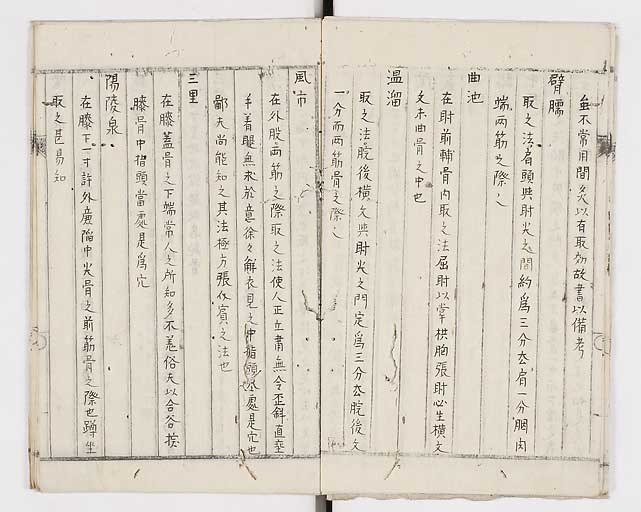 無不常用間灸以有取効故書以備考
臂臑
取之法肩頭與肘尖之間約爲三分去肩一分膶肉
端兩筋之際〻
曲池
在肘前輔骨內取之法屈肘以掌拱胸張肘必生橫文
文末曲骨之中也
溫溜
取之法腕後橫文與肘尖之間定爲三分去腕後文
一分而兩筋骨之際〻
風市
在外股兩筋之際取之法使人正立肅無令歪斜直垂
手着腿無求於意徐〻解衣見之中指頭 處是穴也
鄙夫尚能知之其法極方張 賓之法也
三里
在膝蓋骨之下端常人之所知多不差俗夫以合谷挨
膝骨中指頭當處是爲穴
陽陵泉
在膝下一寸許外廉陷中尖骨之前筋骨之際也蹲坐
取之甚易知